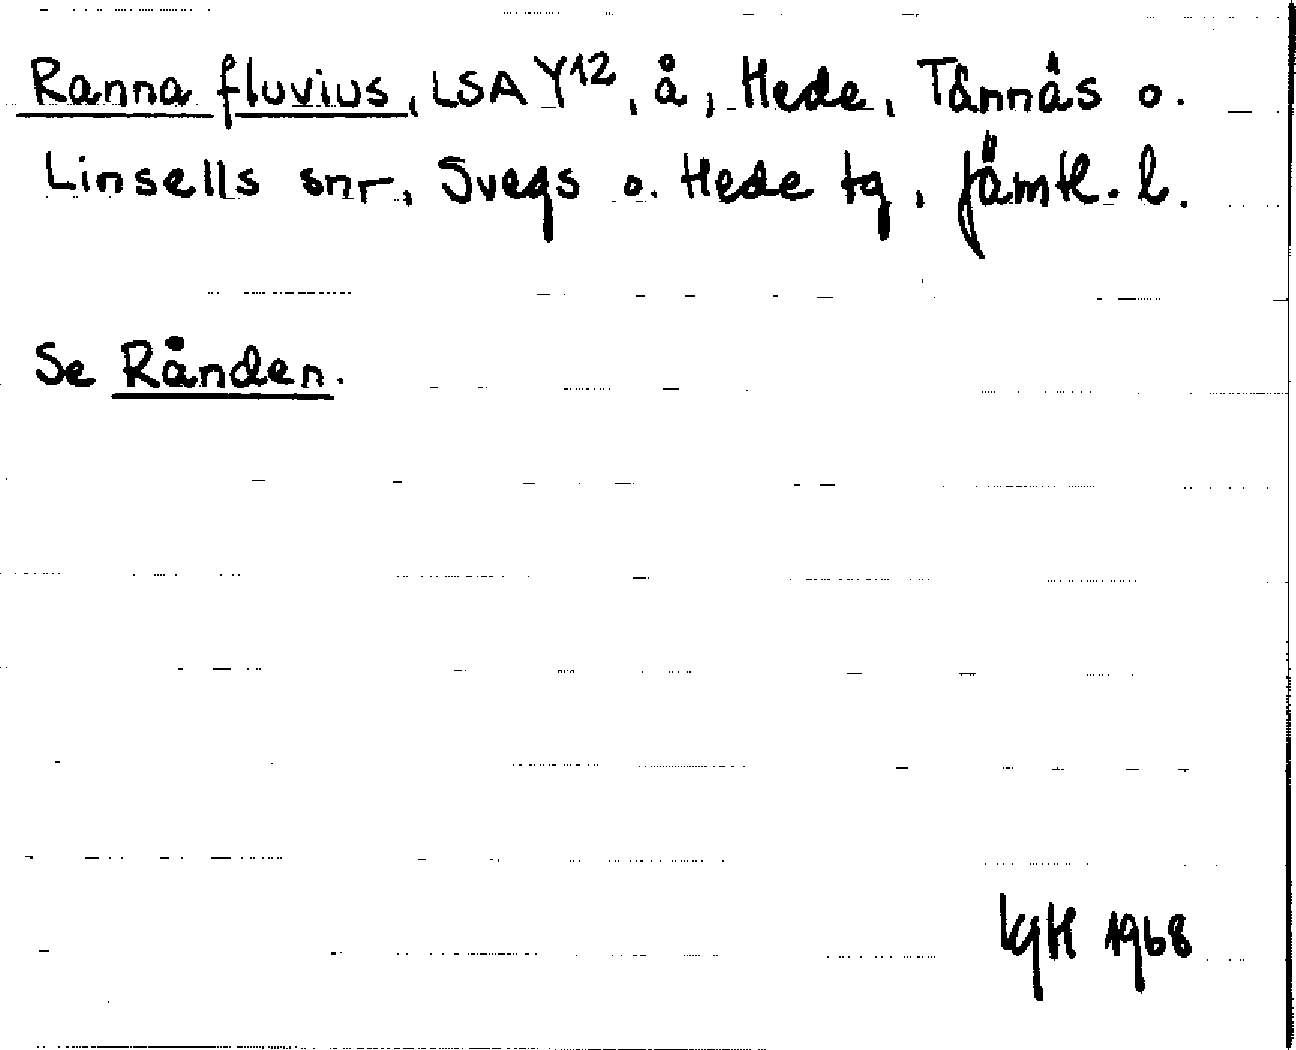 Ranna fluvius, LSA Y12, å, Hede, Tännäs o.
Linsells snr, Svegs o. Hede tg, Jämtl. l.
Se Rånden.
LgH 1968